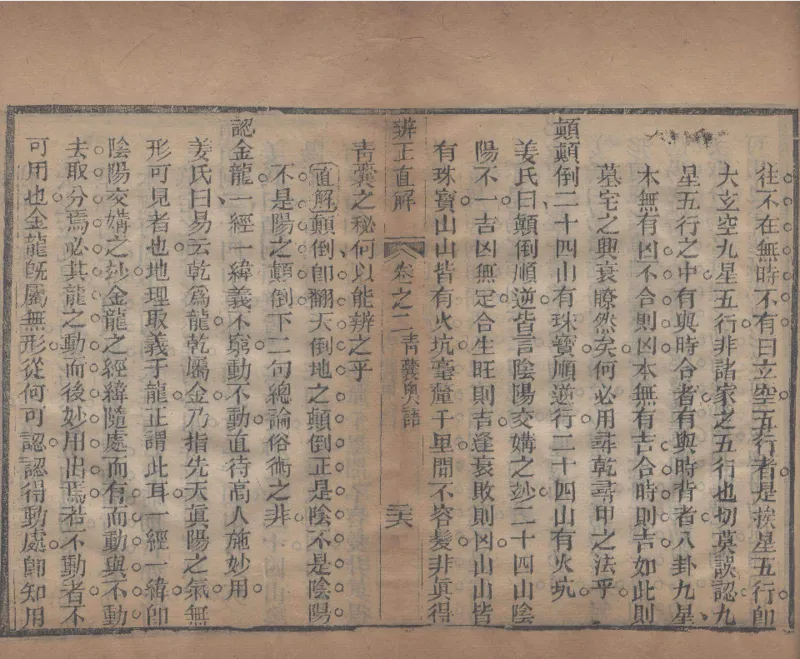 往不在無時不有曰立空五行者是挨星五行卽
大玄空九星五行非諸家之五行也切莫誤認九
星五行之中有與時合者有與時背者八卦九星
本無有凶不合則凶本無有吉合時則吉如此則
墓宅之興衰瞭然矣何必用尋乾尋甲之法乎
顛顛倒二十四山有珠寶順逆行二十四山有火坑
姜氏曰顛倒順逆皆言陰陽交媾之玅二十四山陰
陽不一吉凶無定合生旺則吉逢衰敗則凶山山皆
有珠寶山山皆有火坑毫釐千里間不容髮非眞得
辨正直解 卷之二青囊奧語 二六
青囊之秘何以能辨之乎
直解顛倒卽翻天倒地之顛倒正是陰不是陰陽
不是陽之顛倒下二句總論俗術之非
認金龍一經一緯義不窮動不動直待高人施妙用
姜氏曰易云乾爲龍乾屬金乃指先天眞陽之氣無
形可見者也地理取義于龍正謂此耳一經一緯卽
陰陽交媾之玅金龍之經緯隨處而有而動與不動
去取分焉必其龍之動而後妙用出焉若不動者不
可用也金龍旣屬無形從何可認認得動處卽知用